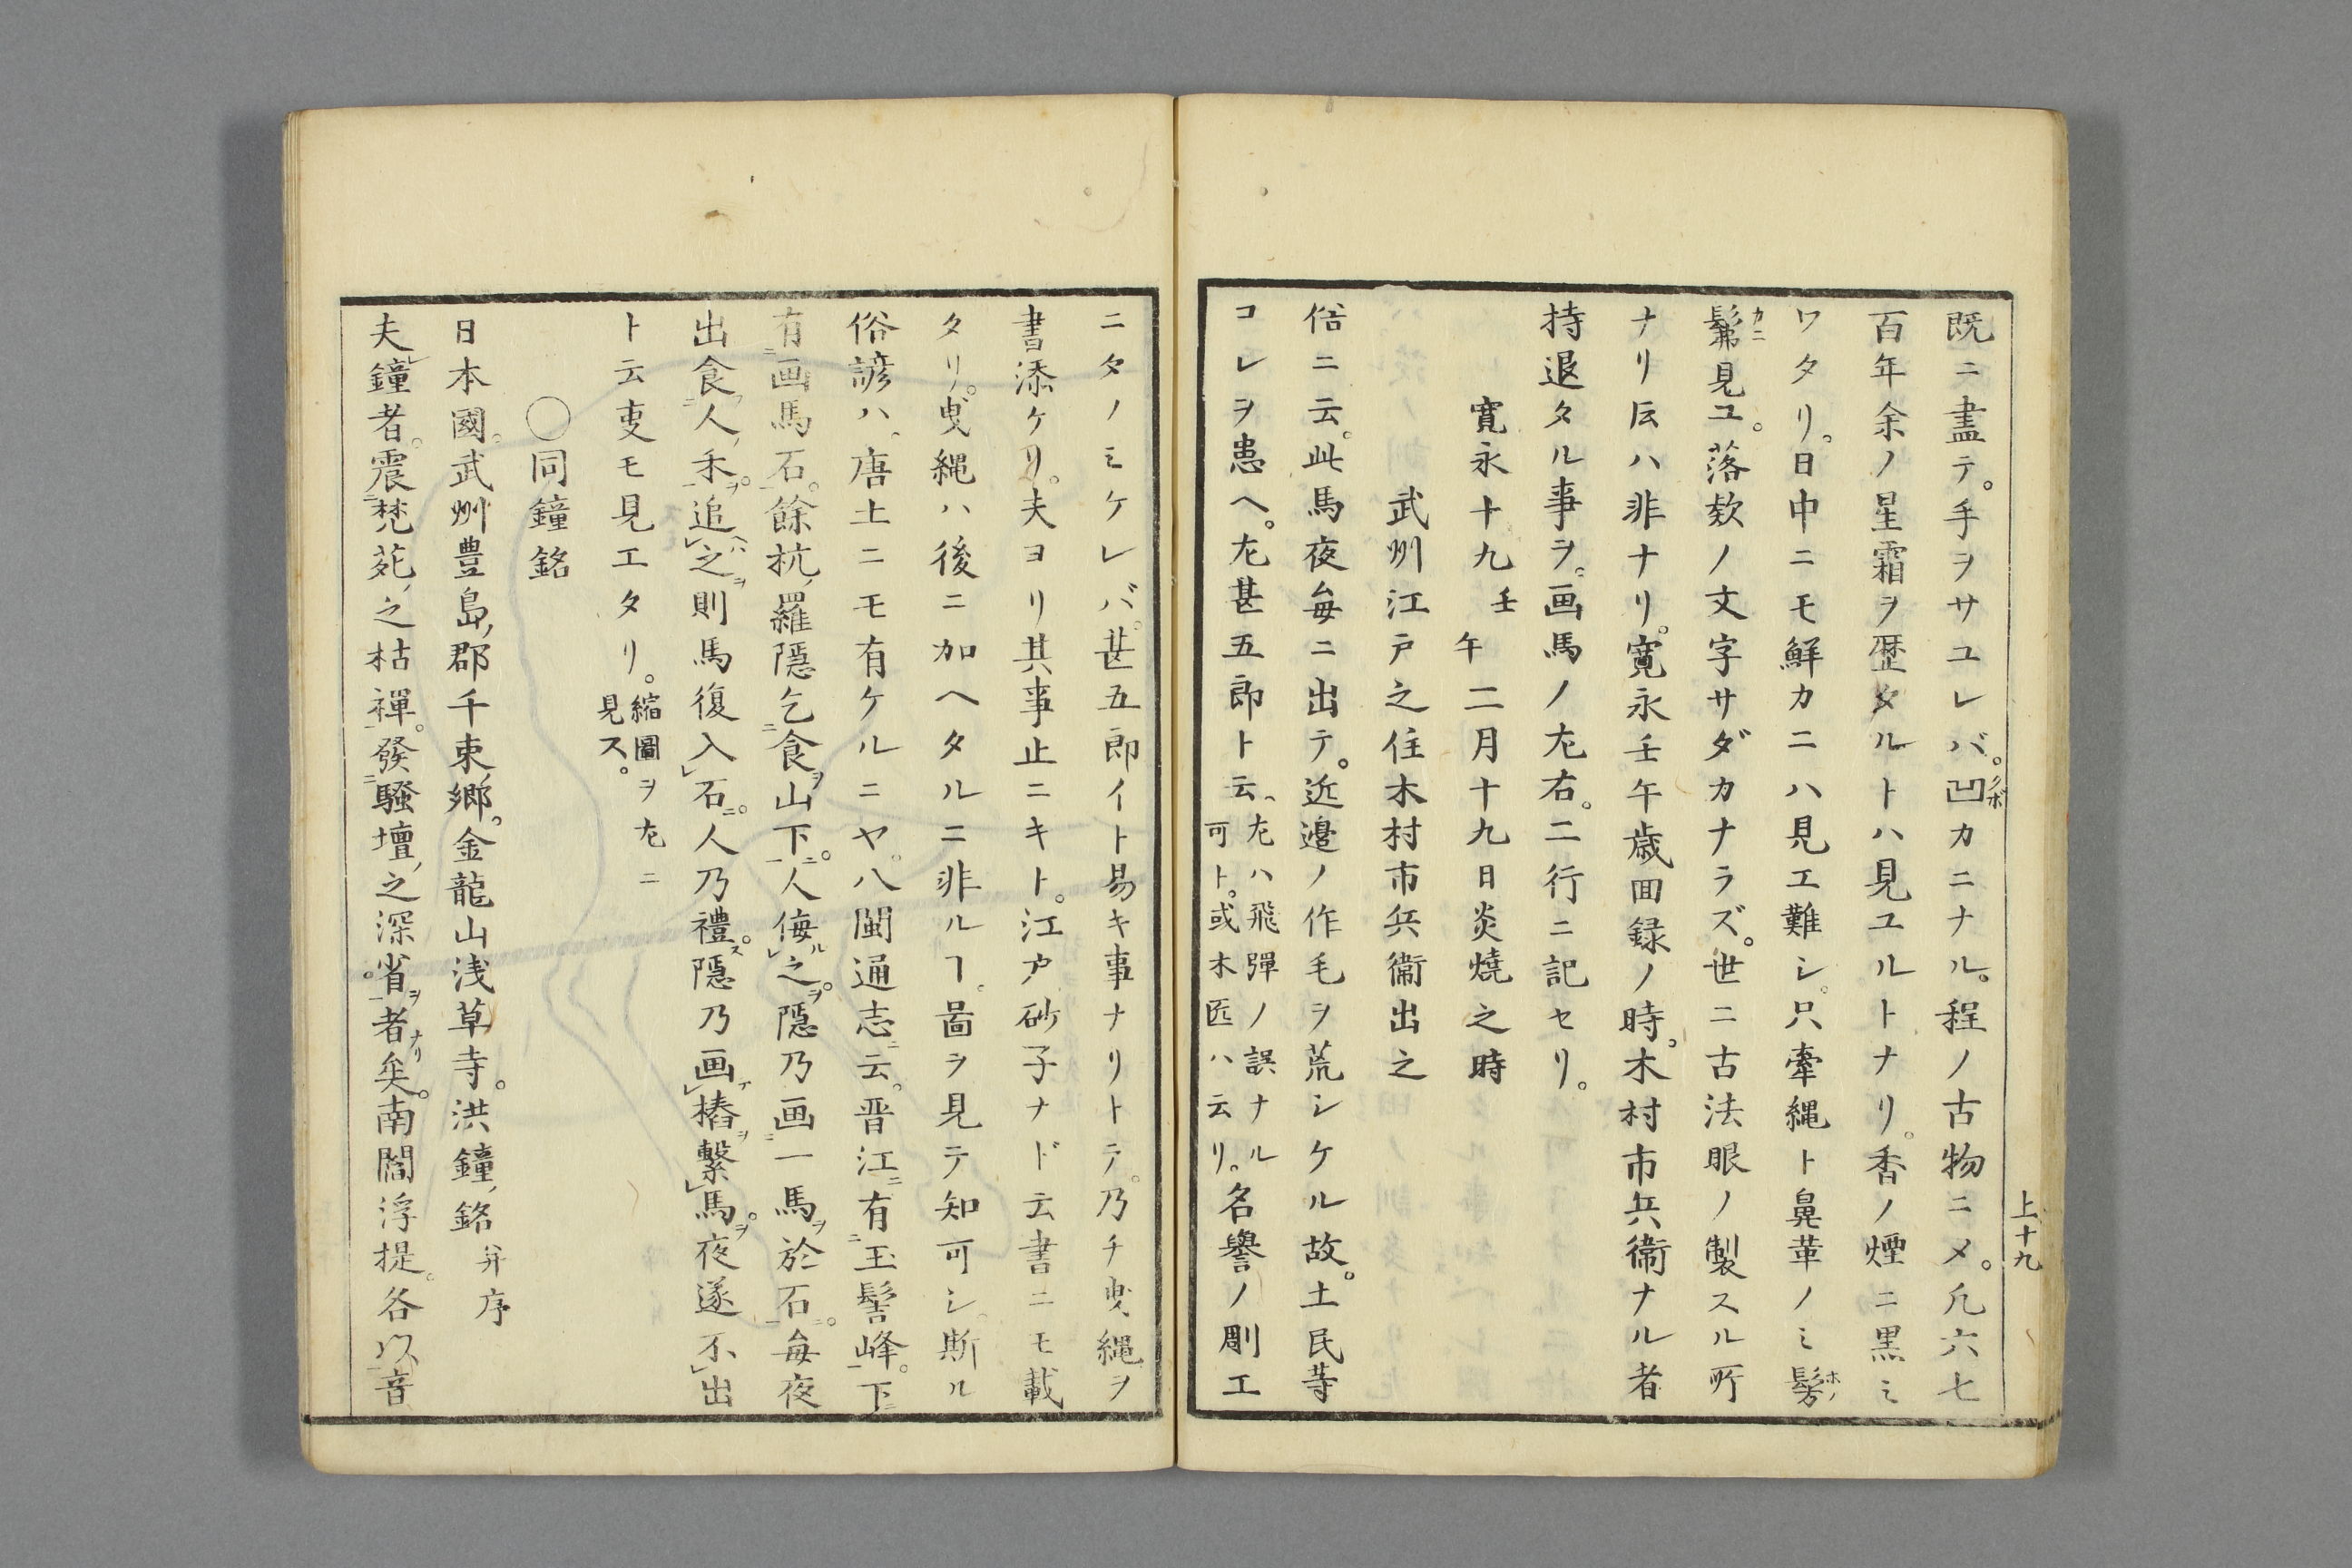 既ニ盡テ。手ヲサユレバ。凹カニナル。程ノ古物ニメ。凡六七
百年余ノ星霜ヲ歴タルトハ見ユルトナリ。香ノ煙ニ黒ミ
ワタリ。日中ニモ鮮カニハ見エ難シ。只牽縄ト鼻革ノミ髣
髴見ユ。落款ノ文字サダカナラズ。世ニ古法眼ノ製スル所
ナリ𪜈ハ非ナリ。寛永壬午歳回録ノ時。木村市兵衞ナル者
持退タル事ヲ。画馬ノ左右。二行ニ記セリ。
寛永十九壬午二月十九日炎燒之時
武州江戸之住木村市兵衞出之
俗ニ云。此馬夜毎ニ出テ。近邉ノ作毛ヲ荒シケル故。土民等
コレヲ患ヘ。左甚五郎ト云、左ハ飛彈ノ誤ナル可ト。或木匠ハ云リ。名譽ノ剛工
上十九
ニタノミケレバ。甚五郎イト易キ事ナリトテ。乃チ曳縄ヲ
書添ケリ。夫ヨリ其事止ニキト。江戸砂子ナド云書ニモ載
タリ。曳縄ハ後ニ加ヘタルニ非ルヿ。圖ヲ見テ知可シ。斯ル
俗諺ハ。唐土ニモ有ケルニヤ。八閩通志ニ云。晋江ニ有玉髻峰。下
有画馬石。餘杭羅隠乞食ヲ山下ニ。人侮ル之ヲ。隠乃画一馬ヲ於石ニ。毎夜
出食人禾ヲ。追ヘハ之ヲ則馬復入石ニ。人乃禮ス。隠乃画樁ヲ繋馬ヲ。夜遂不出
ト云叓モ見エタリ。縮圖ヲ左ニ見ス。
○同鐘銘
日本國。武州豊島郡千束郷。金龍山浅草寺。洪鐘銘并序
夫鐘者。震梵苑之枯禪。發騷壇之深省ヲ者ナリ矣。南閻浮提。各以音